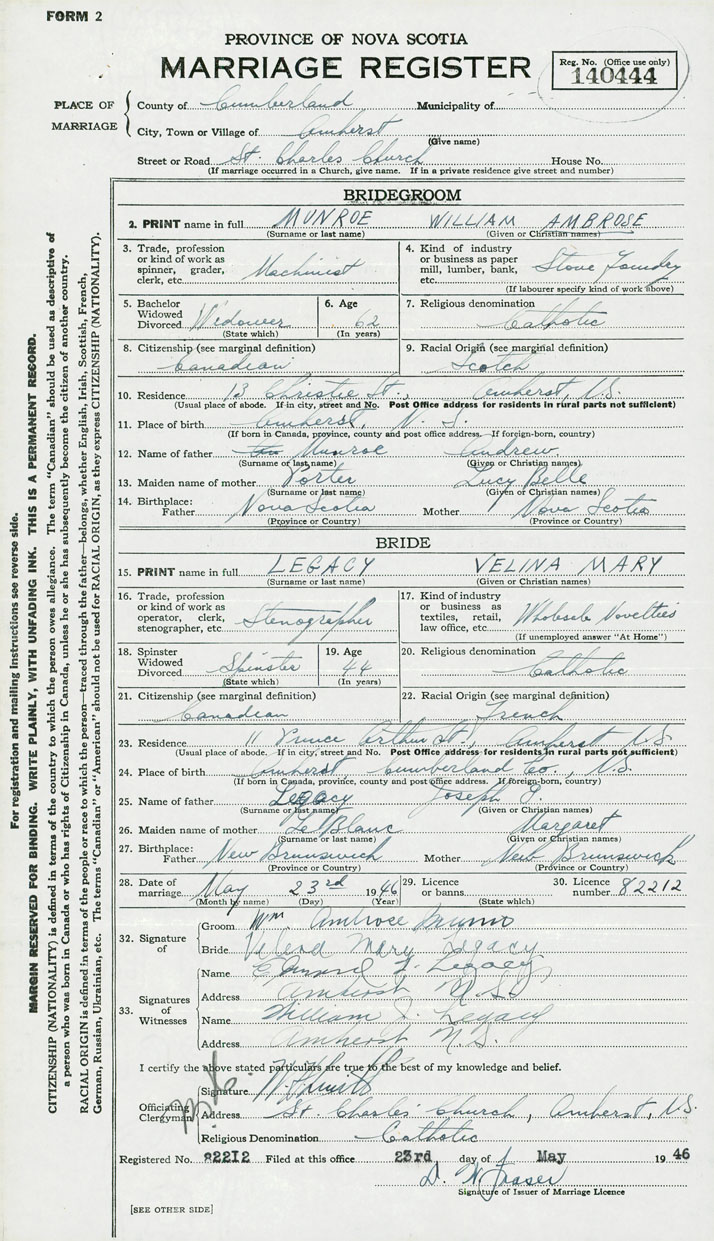 FORM 2
PROVINCE OF NOVA SCOTIA
MARRIAGE REGISTER
Reg. No. (Office use only)
140444
PLACE OF MARRIAGE
County of Cumberland Municipality of
City, Town or Village of Amherst
(Give name)
Street or Road St. Charles Church House No.
(If marriage occurred in a Church, give name. If in a private residence give street and number)
BRIDEGROOM
2. PRINT name in full MUNROE WILLIAM AMBROSE
(Surname or last name) (Given or Christian names)
3. Trade, profession or kind of work as spinner, grader, clerk, etc. Machinist
4. Kind of industry or business as paper mill, lumber, bank, etc. Stove Foundry
(If labourer specify kind of work above)
5. Bachelor Widowed Divorced Widower
(State which)
6. Age 62
(In years)
7. Religious denomination
Catholic
8. Citizenship (see marginal definition)
Canadian
9. Racial Origin (see marginal definition)
Scotch
10. Residence 13 Christie St., Amherst, N.S.
(Usual place of abode. If in city, street and No. Post Office address for residents in rural parts not sufficient)
11. Place of birth Amherst, N. S.
(If born in Canada, province, county and post office address. If foreign-born, country)
12. Name of father Munroe Andrew
(Surname or last name) (Given or Christian names)
13. Maiden name of mother Porter Lucy Belle
(Surname or last name) (Given or Christian names)
14. Birthplace:
Father Nova Scotia Mother Nova Scotia
(Province or Country) (Province or Country)
BRIDE
15. PRINT name in full LEGACY VELINA MARY
(Surname or last name) (Given or Christian names)
16. Trade, profession or kind of work as operator, clerk, stenographer, etc. Stenographer
17. Kind of industry or business as textiles, retail, law office, etc. Wholesale Novelties
(If unemployed answer "At Home")
18. Spinster Widowed Divorced Spinster
(State which)
19. Age 44
(In years)
20. Religious denomination
Catholic
21. Citizenship (see marginal definition)
Canadian
22. Racial Origin (see marginal definition)
French
23. Residence 11 Prince Arthur St., Amherst N.S.
(Usual place of abode. If in city, street and No. Post Office address for residents in rural parts not sufficient)
24. Place of birth Amherst Cumberland Co., N.S.
(If born in Canada, province, county and post office address. If foreign-born, country)
25. Name of father Legacy Joseph J.
(Surname or last name) (Given or Christian names)
26. Maiden name of mother Le Blanc Margaret
(Surname or last name) (Given or Christian names)
27. Birthplace:
Father New Brunswick Mother New Brunswick
(Province or Country) (Province or Country)
28. Date of marriage May 23rd 1946
(Month by name) (Day) (Year)
29. Licence or banns
(State which)
30. Licence number 82212
32. Signature of
Groom Wm Ambrose
Bride Mary Legacy
33. Signatures of Witnesses
Name Legacy
Address Amherst N.S.
Name William J. Legacy
Address Amherst N.S.
I certify the above stated particulars are true to the best of my knowledge and belief.
Officiating Clergyman
Signature
Address St. Charles Church, Amherst, N.S.
Religious Denomination Catholic
Registered No. 82212 Filed at this office 23rd day of May 1946
D. W. Fraser
Signature of Issuer of Marriage Licence
[SEE OTHER SIDE]
For registration and mailing instructions see reverse side.
MARGIN RESERVED FOR BINDING. WRITE PLAINLY, WITH UNFADING INK. THIS IS A PERMANENT RECORD.
CITIZENSHIP (NATIONALITY) is defined in terms of the country to which the person owes allegiance. The term "Canadian" should be used as descriptive of
a person who was born in Canada or who has rights of Citizenship in Canada, unless he or she has subsequently become the citizen of another country.
RACIAL ORIGIN is defined in terms of the people or race to which the person—traced through the father—belongs, whether English, Irish, Scottish, French,
German, Russian, Ukrainian, etc. The terms "Canadian" or "American" should not be used for RACIAL ORIGIN, as they express CITIZENSHIP (NATIONALITY).